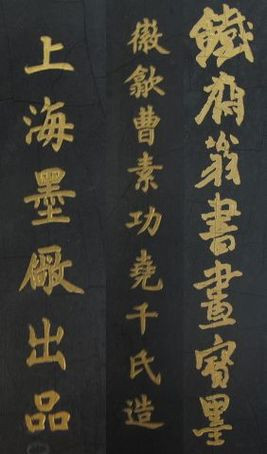 鐵斎翁書畫寳墨
徽歙曹素功堯千氏造
上海墨厰出品